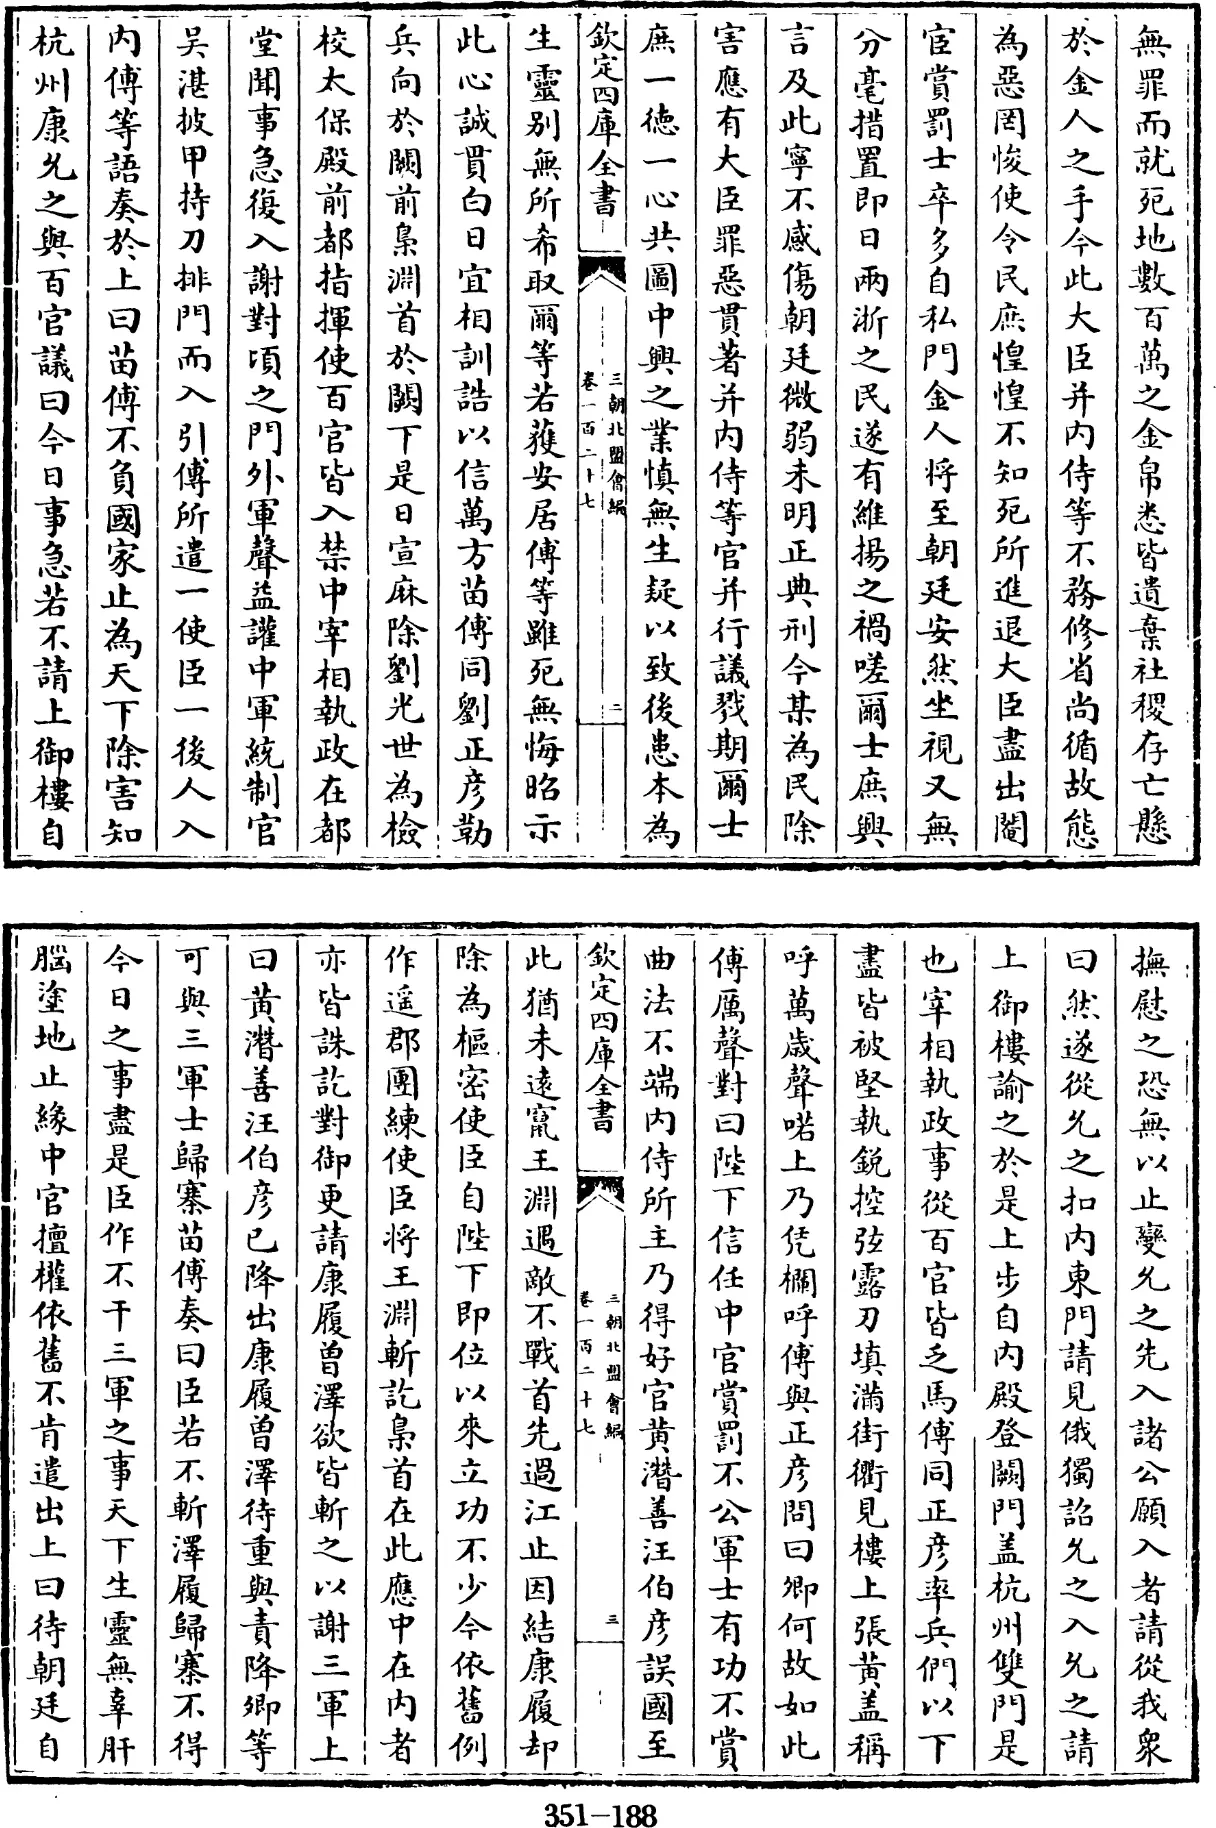 無罪而就死地數百萬之金帛悉皆遺棄社稷存亡懸
於金人之手今此大臣并内侍等不務修省尚循故態
為惡罔悛使令民庶惶惶不知死所進退大臣盡出閹
宦賞罰士卒多自私門金人將至朝廷安然坐視又無
分毫措置即日兩浙之民遂有維揚之禍嗟爾士庶興
言及此寧不感傷朝廷微弱未明正典刑今某為民除
害應有大臣罪惡貫著并内侍等官并行議戮期爾士
庶一徳一心共圖中興之業慎無生疑以致後患本為
欽定四庫全書
三朝北盟會編
卷一百二十七
二
生靈别無所希取爾等若獲安居傅等雖死無悔昭示
此心誠貫白日宜相訓誥以信萬方苗傅同劉正彦勒
兵向於闕前梟淵首於闕下是日宣麻除劉光世為檢
校太保殿前都指揮使百官皆入禁中宰相執政在都
堂聞事急復入謝對頃之門外軍聲益讙中軍統制官
吳湛披甲持刀排門而入引傅所遣一使臣一後人入
内傅等語奏於上曰苗傅不負國家止為天下除害知
杭州康允之與百官議曰今日事急若不請上御樓自
撫慰之恐無以止變允之先入諸公願入者請從我衆
曰然遂從允之扣内東門請見俄獨詔允之入允之請
上御樓諭之於是上步自内殿登闕門盖杭州雙門是
也宰相執政事從百官皆乏馬傅同正彦率兵們以下
盡皆被堅執鋭控弦露刃填滿街衢見樓上張黄盖稱
呼萬歳聲喏上乃凭欄呼傅與正彦問曰卿何故如此
傅厲聲對曰陛下信任中官賞罰不公軍士有功不賞
曲法不端内侍所主乃得好官黄潛善汪伯彦誤國至
欽定四庫全書
三朝北盟會編
卷一百二十七
三
此猶未遠竄王淵遇敵不戰首先過江止因結康履却
除為樞密使臣自陛下即位以來立功不少今依舊例
作遥郡團練使臣將王淵斬訖梟首在此應中在内者
亦皆誅訖對御更請康履曾澤欲皆斬之以謝三軍上
曰黄潛善汪伯彦已降出康履曾澤待重與責降卿等
可與三軍士歸寨苗傅奏曰臣若不斬澤履歸寨不得
今日之事盡是臣作不干三軍之事天下生靈無辜肝
腦塗地止緣中官擅權依舊不肯遣出上曰待朝廷自
351-188